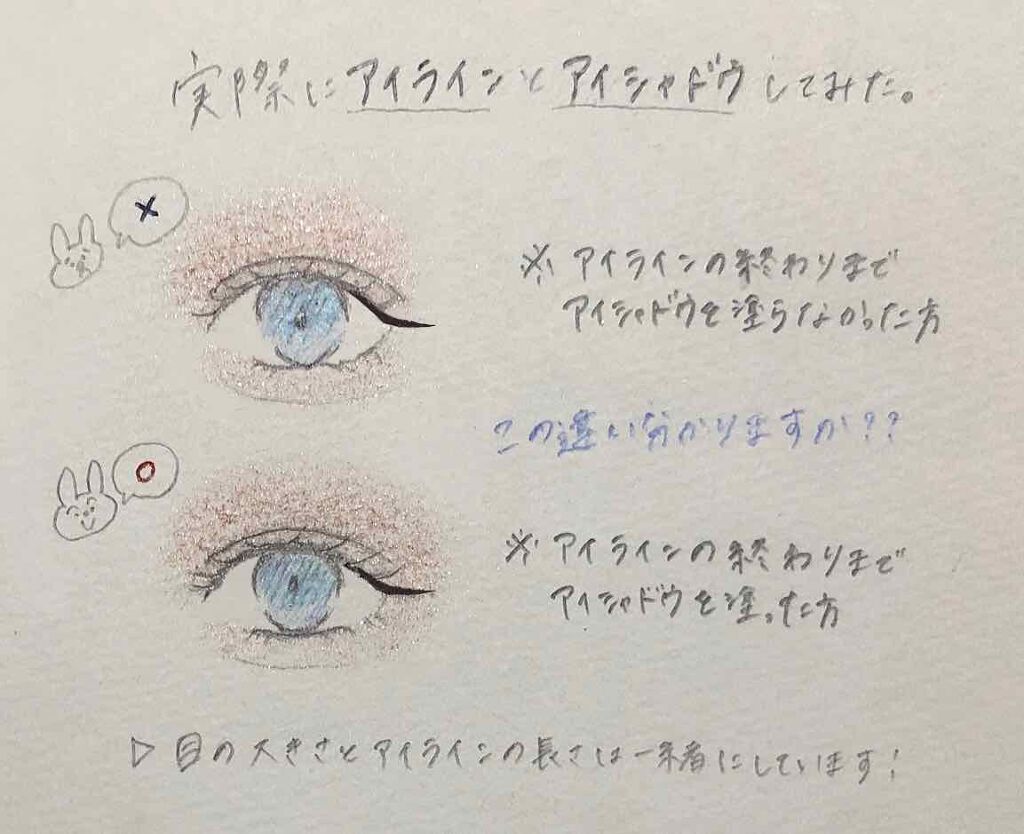 実際にアイラインとアイシャドウしてみた。
×
※ アイラインの終わりまで
アイシャドウを塗らなかった方
この違い分かりますか??
○
※ アイラインの終わりまで
アイシャドウを塗った方
▷ 目の大きさとアイラインの長さは一緒にしています!